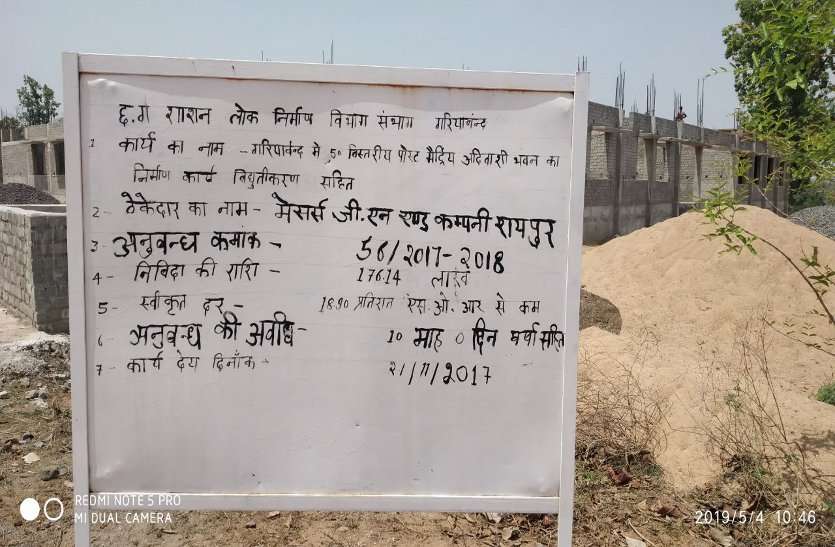 छ.ग शासन लोक निर्माण विभाग संभाग गरियाबंद
1 कार्य का नाम - गरियाबंद मे 50 बिस्तरीय पोस्ट मैट्रिय अदिवाशी भवन का
निर्माण कार्य विद्युतीकरण सहित
2- ठेकेदार का नाम - मेसर्स जी.एन एण्ड कम्पनी रायपुर
3- अनुबन्ध कमांक - 56/2017-2018
4- निविदा की राशि - 176.14 लाख
5- स्वीकृत दर - 18.90 प्रतिशत एस.ओ.आर से कम
6- अनुबन्ध की अवधि- 10 माह 0 दिन वर्षा सहित
7- कार्य देय दिनाँक - 21/11/2017
REDMI NOTE 5 PRO
MI DUAL CAMERA
2019/5/4 10:46